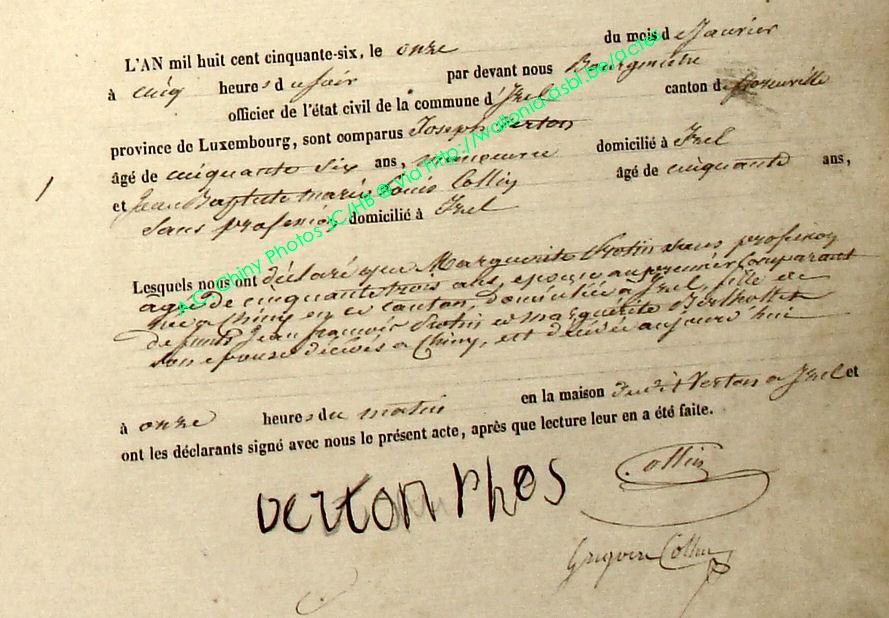 L'AN mil huit cent cinquante-six, le onze du mois de Janvier
à cinq heures du soir par devant nous Bourgmestre
officier de l'état civil de la commune d'Izel canton de florenville
province de Luxembourg, sont comparus Joseph Verton
âgé de cinquante six ans, domicilié à Izel
et Jean Baptiste marie Louis Collin âgé de cinquante ans,
Sans profession domicilié à Izel
Lesquels nous ont déclaré que Marguerite sans profession
âgée de cinquante trois ans, epouse au premier Comparant
née à Chiny en ce canton, domiciliée à Izel, fille de
defunts Jean françois et marguerite
son epouse décédés à Chiny, est décédée aujourd'hui
à onze heures du matin en la maison dudit Verton à Izel et
ont les déclarants signé avec nous le présent acte, après que lecture leur en a été faite.
verton Phos
Collin
Collin
A.C. Chiny Photos JC/HB @ via http://wallonia.asbl.be/actes